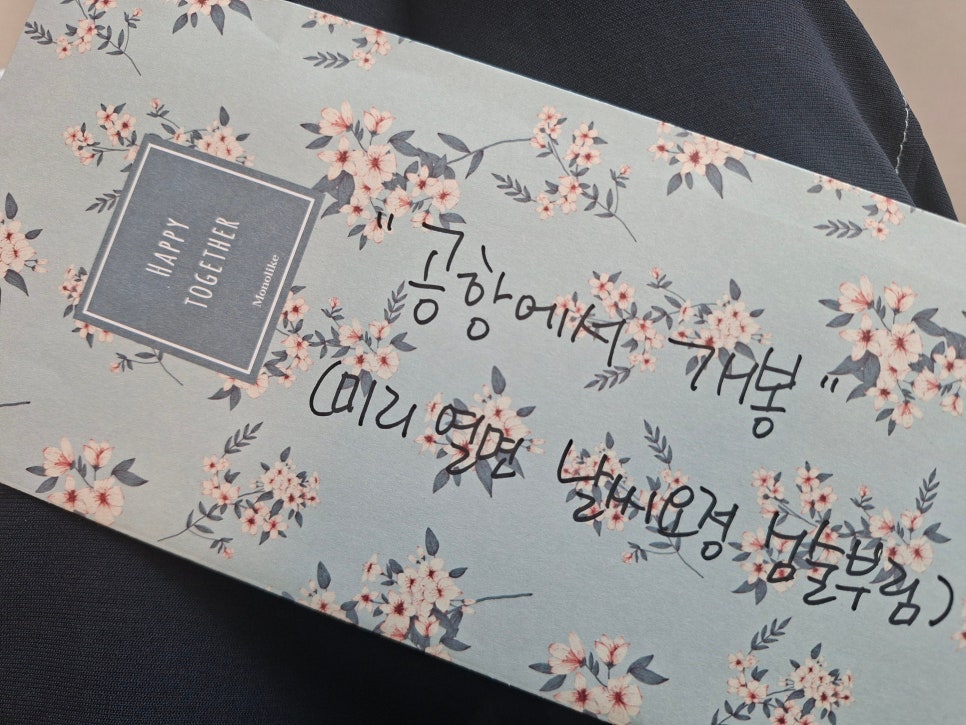 HAPPY
TOGETHER
Monolike
"공항에서 개봉"
(미리 열면 날씨요정 심술부림)